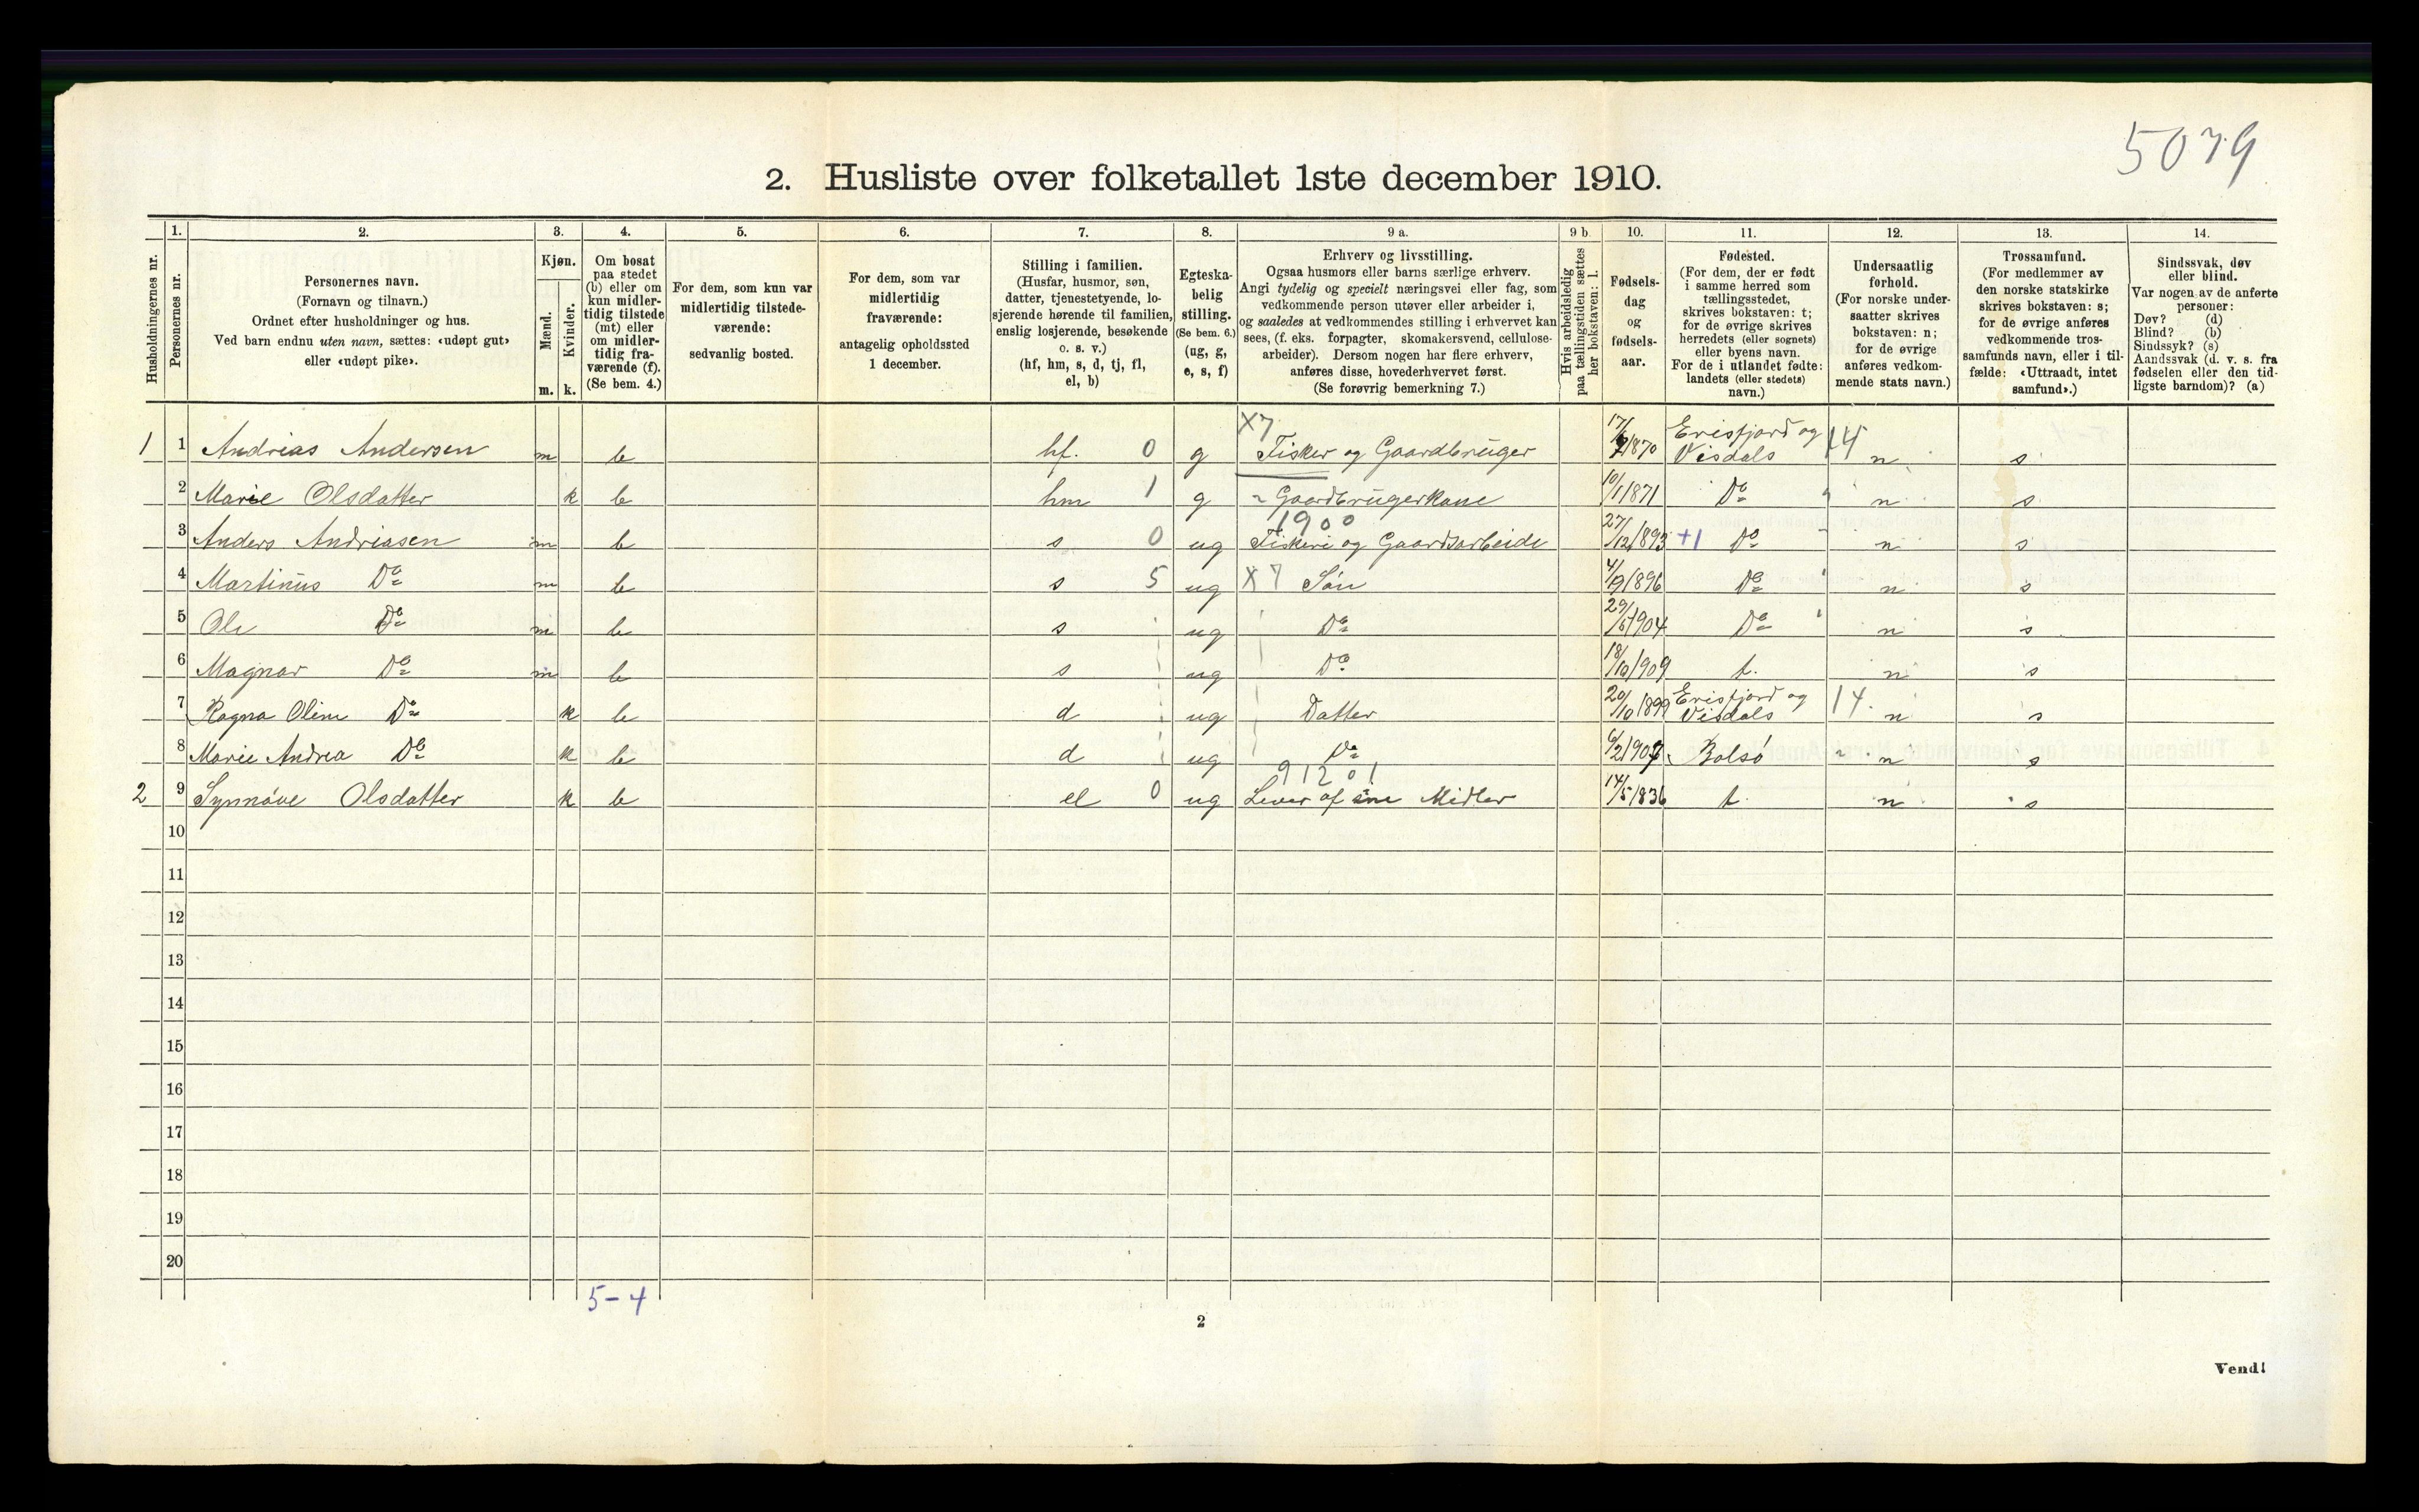 5079
2. Husliste over folketallet 1ste december 1910.
Husholdningernes nr.
1.
Personernes nr.
2.
Personernes navn.
(Fornavn og tilnavn.)
Ordnet efter husholdninger og hus.
Ved barn endnu uten navn, sættes: «udøpt gut»
eller «udøpt pike».
3.
Kjøn.
Mænd.
m.
Kvinder.
k.
4.
Om bosat
paa stedet
(b) eller om
kun midler-
tidig tilstede
(mt) eller
om midler-
tidig fra-
værende (f).
(Se bem. 4.)
5.
For dem, som kun var
midlertidig tilstede-
værende:
sedvanlig bosted.
6.
For dem, som var
midlertidig
fraværende:
antagelig opholdssted
1 december.
7.
Stilling i familien.
(Husfar, husmor, søn,
datter, tjenestetyende, lo-
sjerende hørende til familien,
enslig losjerende, besøkende
o. s. v.)
(hf, hm, s, d, tj, fl,
el, b)
8.
Egteska-
belig
stilling.
(Se bem. 6.)
(ug, g,
e, s, f)
9 a.
Erhverv og livsstilling.
Ogsaa husmors eller barns særlige erhverv.
Angi tydelig og specielt næringsvei eller fag, som
vedkommende person utøver eller arbeider i,
og saaledes at vedkommendes stilling i erhvervet kan
sees, (f. eks. forpagter, skomakersvend, cellulose-
arbeider). Dersom nogen har flere erhverv,
anføres disse, hovederhvervet først.
(Se forøvrig bemerkning 7.)
9 b.
Hvis arbeidsledig
paa tællingstiden sættes
her bokstaven: l.
10.
Fødsels-
dag
og
fødsels-
aar.
11.
Fødested.
(For dem, der er født
i samme herred som
tællingsstedet,
skrives bokstaven: t;
for de øvrige skrives
herredets (eller sognets)
eller byens navn.
For de i utlandet fødte:
landets (eller stedets)
navn.)
12.
Undersaatlig
forhold.
(For norske under-
saatter skrives
bokstaven: n;
for de øvrige
anføres vedkom-
mende stats navn.)
13.
Trossamfund.
(For medlemmer av
den norske statskirke
skrives bokstaven: s;
for de øvrige anføres
vedkommende tros-
samfunds navn, eller i til-
fælde: «Uttraadt, intet
samfund».)
14.
Sindssvak, døv
eller blind.
Var nogen av de anførte
personer:
Døv? (d)
Blind? (b)
Sindssyk? (s)
Aandssvak (d. v. s. fra
fødselen eller den tid-
ligste barndom)? (a)
X7
1 1 Andrias Andersen m b hf. 0 g Fisker og Gaardbruger 1870 Erisfjord og Visdals 14 n s
2 Marie Olsdatter k b hm 1 g Gaardbrugerkone 10/1 1871 Do n s
1900
3 Anders Andriasen m b s 0 ug Fiskeri og Gaardsarbeide 27/12 1893 +1 Do n s
4 Martinus Do m b s 5 ug X7 Søn 4/9 1896 Do n s
5 Ole Do m b s ug Do 1904 Do n s
6 Magnar Do m b s ug Do 18/10 1909 t. n s
7 Ragna Oline Do k b d ug Datter 20/10 1899 Erisfjord og Visdals 14. n s
8 Marie Andrea Do k b d ug Do 6/2 1907 Bolsø n s
91201
2 9 Synnøve Olsdatter k b el 0 ug Lever af sine Midler 14/5 1836 t n s
10
11
12
13
14
15
16
17
18
19
20
5-4
2
Vend!